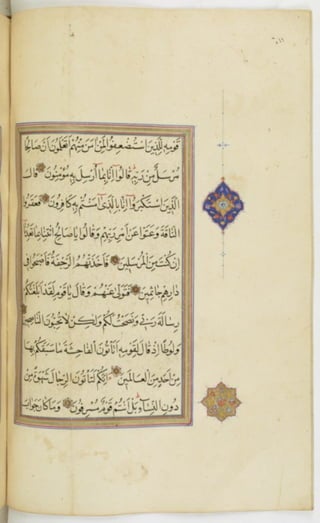 قَوْمِهِ لِلَّذِينَ اسْتُضْعِفُوا لِمَنْ آمَنَ مِنْهُمْ أَتَعْلَمُونَ أَنَّ صَالِحًا
مُرْسَلٌ مِنْ رَبِّهِ قَالُوا إِنَّا بِمَا أُرْسِلَ بِهِ مُؤْمِنُونَ قَالَ
الَّذِينَ اسْتَكْبَرُوا إِنَّا بِالَّذِي آمَنْتُمْ بِهِ كَافِرُونَ فَعَقَرُوا
النَّاقَةَ وَعَتَوْا عَنْ أَمْرِ رَبِّهِمْ وَقَالُوا يَا صَالِحُ ائْتِنَا بِمَا تَعِدُنَا
إِنْ كُنْتَ مِنَ الْمُرْسَلِينَ فَأَخَذَتْهُمُ الرَّجْفَةُ فَأَصْبَحُوا فِي
دَارِهِمْ جَاثِمِينَ فَتَوَلَّى عَنْهُمْ وَقَالَ يَا قَوْمِ لَقَدْ أَبْلَغْتُكُمْ
رِسَالَةَ رَبِّي وَنَصَحْتُ لَكُمْ وَلَكِنْ لَا تُحِبُّونَ النَّاصِحِينَ
وَلُوطًا إِذْ قَالَ لِقَوْمِهِ أَتَأْتُونَ الْفَاحِشَةَ مَا سَبَقَكُمْ بِهَا
مِنْ أَحَدٍ مِنَ الْعَالَمِينَ إِنَّكُمْ لَتَأْتُونَ الرِّجَالَ شَهْوَةً مِنْ
دُونِ النِّسَاءِ بَلْ أَنْتُمْ قَوْمٌ مُسْرِفُونَ وَمَا كَانَ جَوَابَ